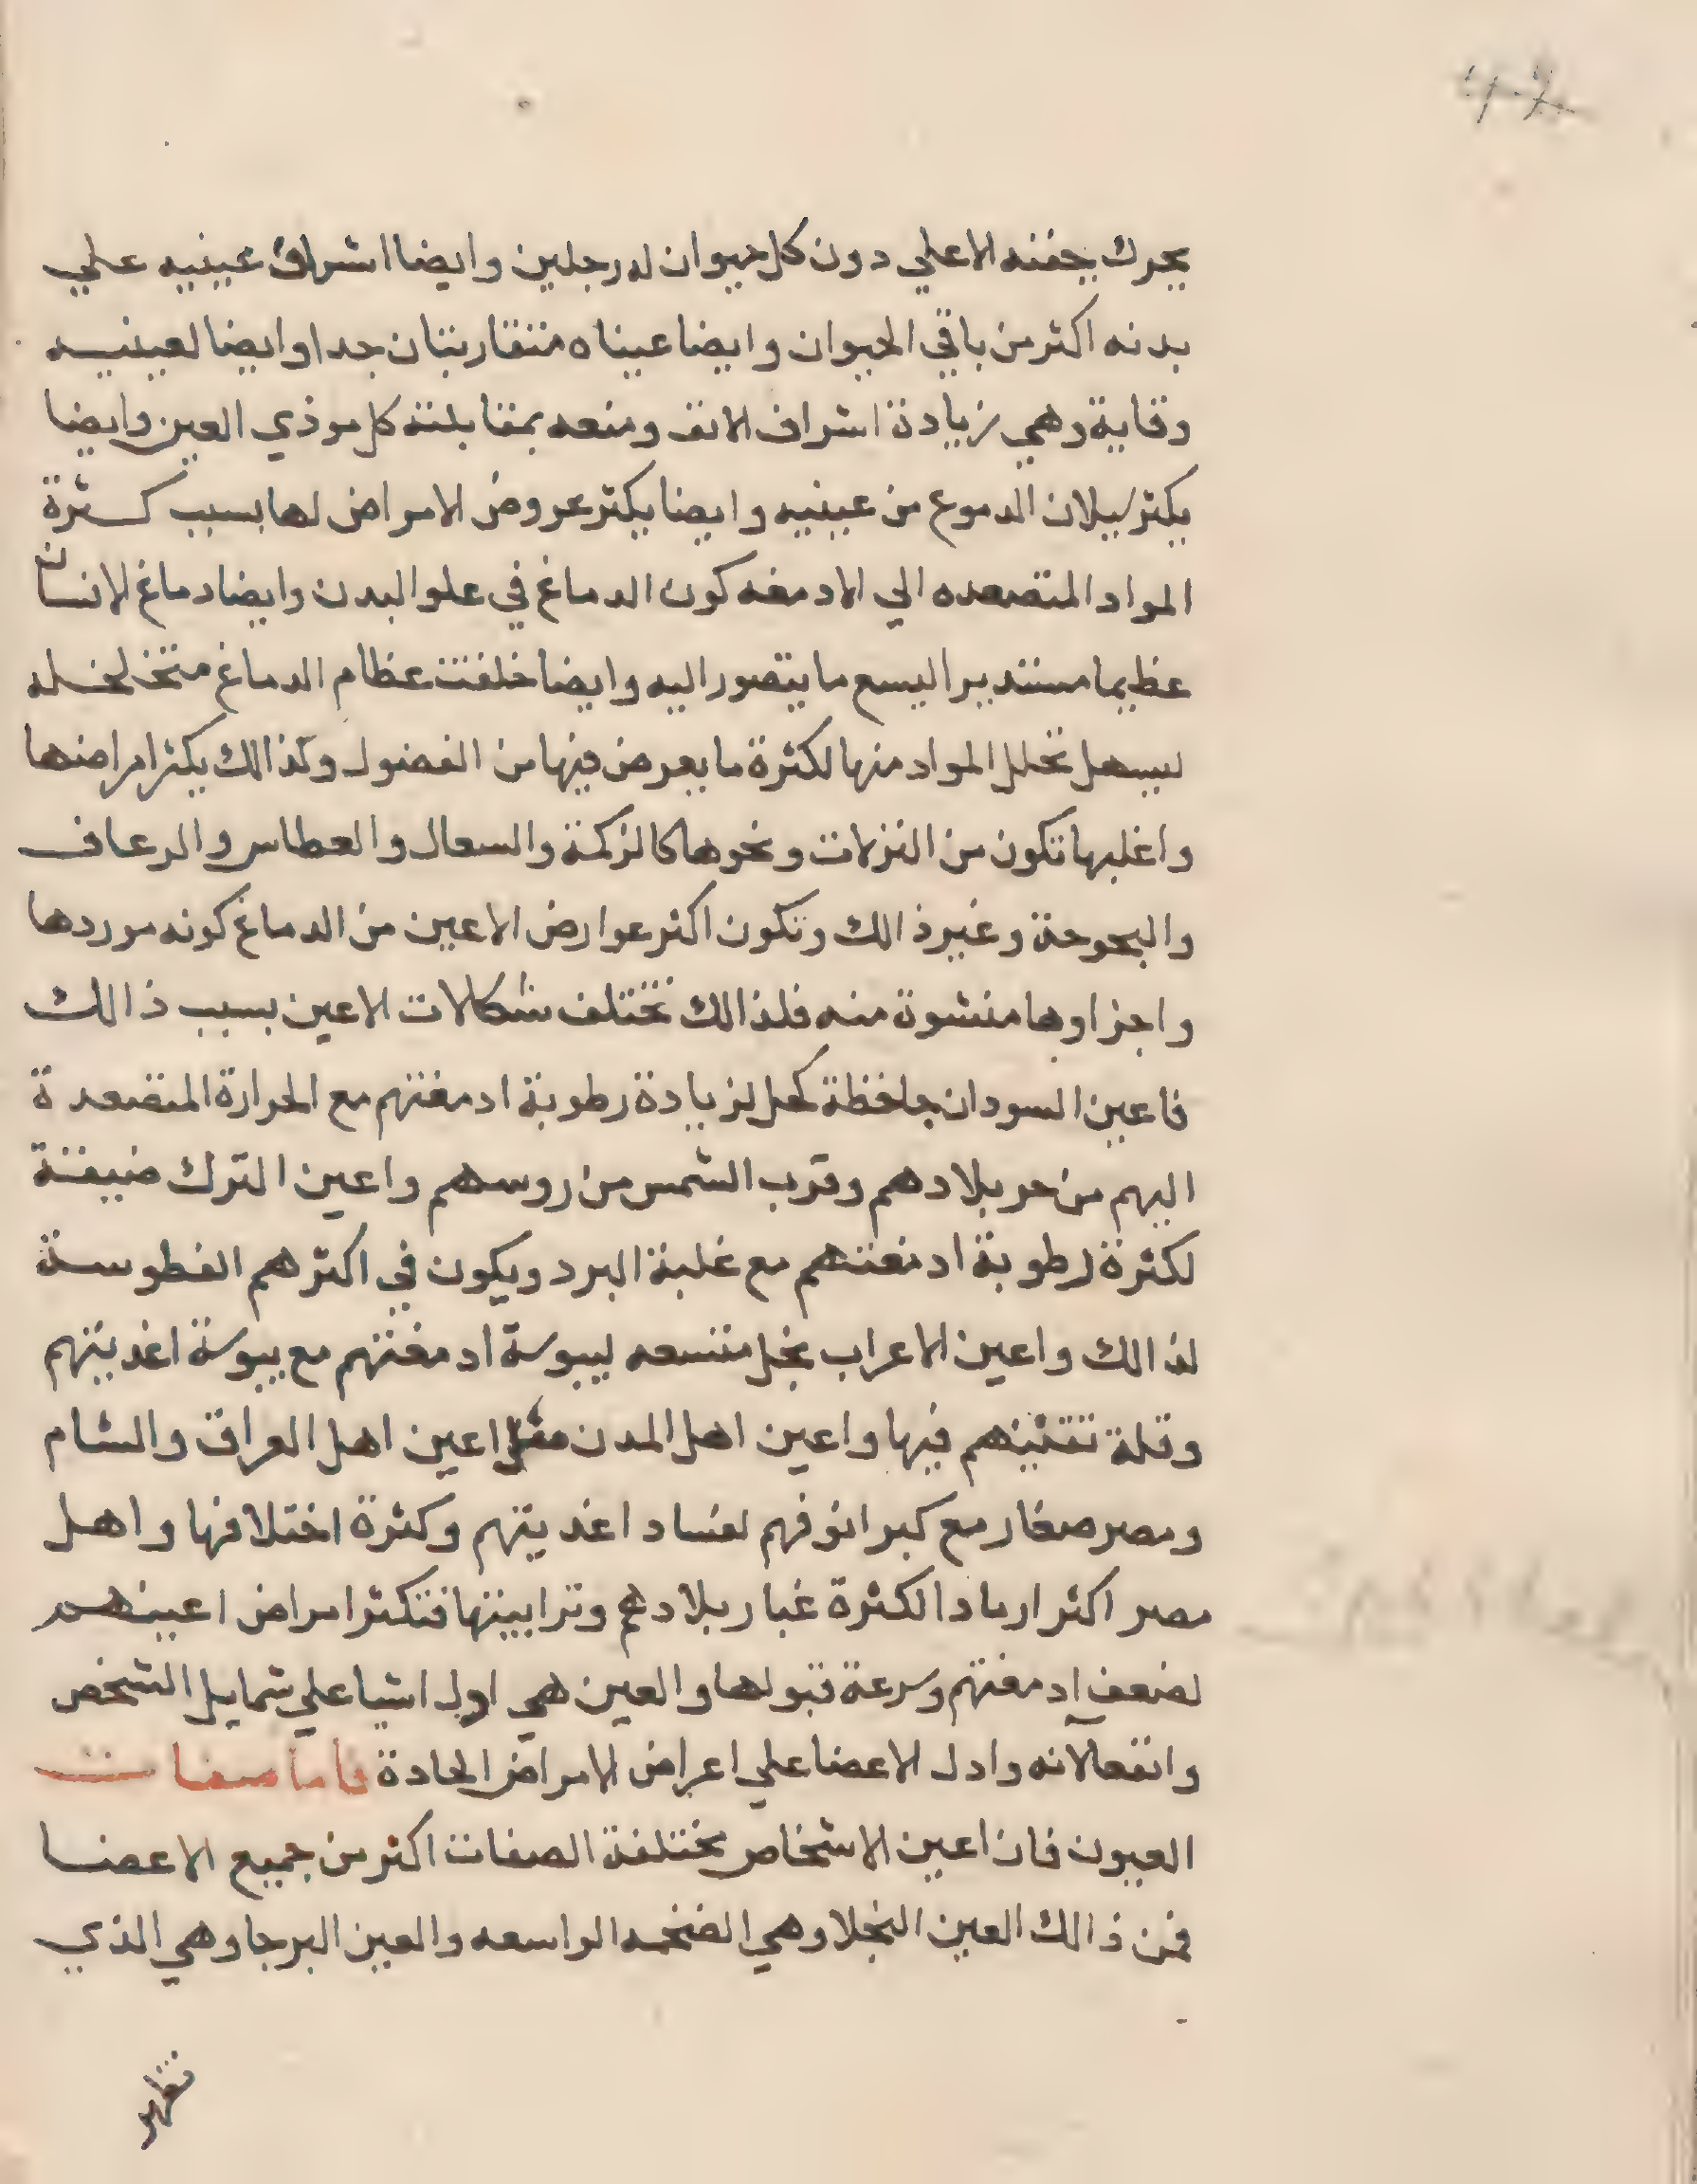 يحرك جفنه الاعلي دون كل حيوان له رجلين وايضا اشراق عينيه علي
بدنه اكثر من باقي الحيوان وايضا عيناه متقاربتان جدا وايضا لعينيه
وقاية وهي زيادة اشراف الانف ومنعه بمقابلته كل موذي العين وايضا
يكثر سيلان الدموع من عينيه وايضا يكثر عروض الامراض لها بسبب كثرة
المواد المتصعده الي الادمغه كون الدماغ في علو البدن وايضا دماغ الانسان
عظيما مستديرا ليسع ما يتصور اليه وايضا خلقت عظام الدماغ متخلخله
ليسهل تحلل المواد منها لكثرة ما يعرض فيها من الفضول وكذالك يكثر امراضها
واغلبها تكون من النزلات ونحوها كالزكمة والسعال والعطاس والرعاف
والبحوحة وغير ذالك وتكون اكثر عوارض الاعين من الدماغ كونه موردها
واجزاوها منشوة منه فلذالك تختلف شكالات الاعين بسبب ذالك
فاعين السودان جاحظة كحل لزيادة رطوبة ادمغتهم مع الحرارة المتصعدة
اليهم من حر بلادهم وقرب الشمس من روسهم واعين الترك ضيقة
لكثرة رطوبة ادمغتهم مع غلبة البرد ويكون في اكثرهم الفطوسة
لذالك واعين الاعراب نجل متسعه ليبوسة ادمغتهم مع يبوسة اغديتهم
وقلة تفننهم فيها واعين اهل المدن مثل اعين اهل العراق والشام
ومصر صغار مع كبر انوفهم لفساد اغديتهم وكثرة اختلافها واهل
مصر اكثر ارمادا لكثرة غبار بلادهم وترابيتها فتكثر امراض اعينهم
لضعف ادمغتهم وسرعة قبولها والعين هي اول اشيا علي شمايل الشخص
وانفعالاته وادل الاعضا علي اعراض الامراض الحادة فاما صفات
العيون فان اعين الاشخاص مختلفة الصفات اكثر من جميع الاعضا
فمن ذالك العين النجلا وهي الضخمه الواسعه والعين البرجا وهي الذي